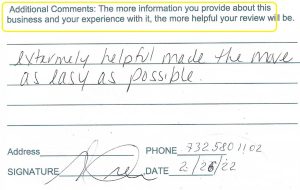 Additional Comments: The more information you provide about this
business and your experience with it, the more helpful your review will be.
extarmely helpful made the move
as easy as possible.
Address
PHONE 732 580 1102
SIGNATURE DATE 2/26/22